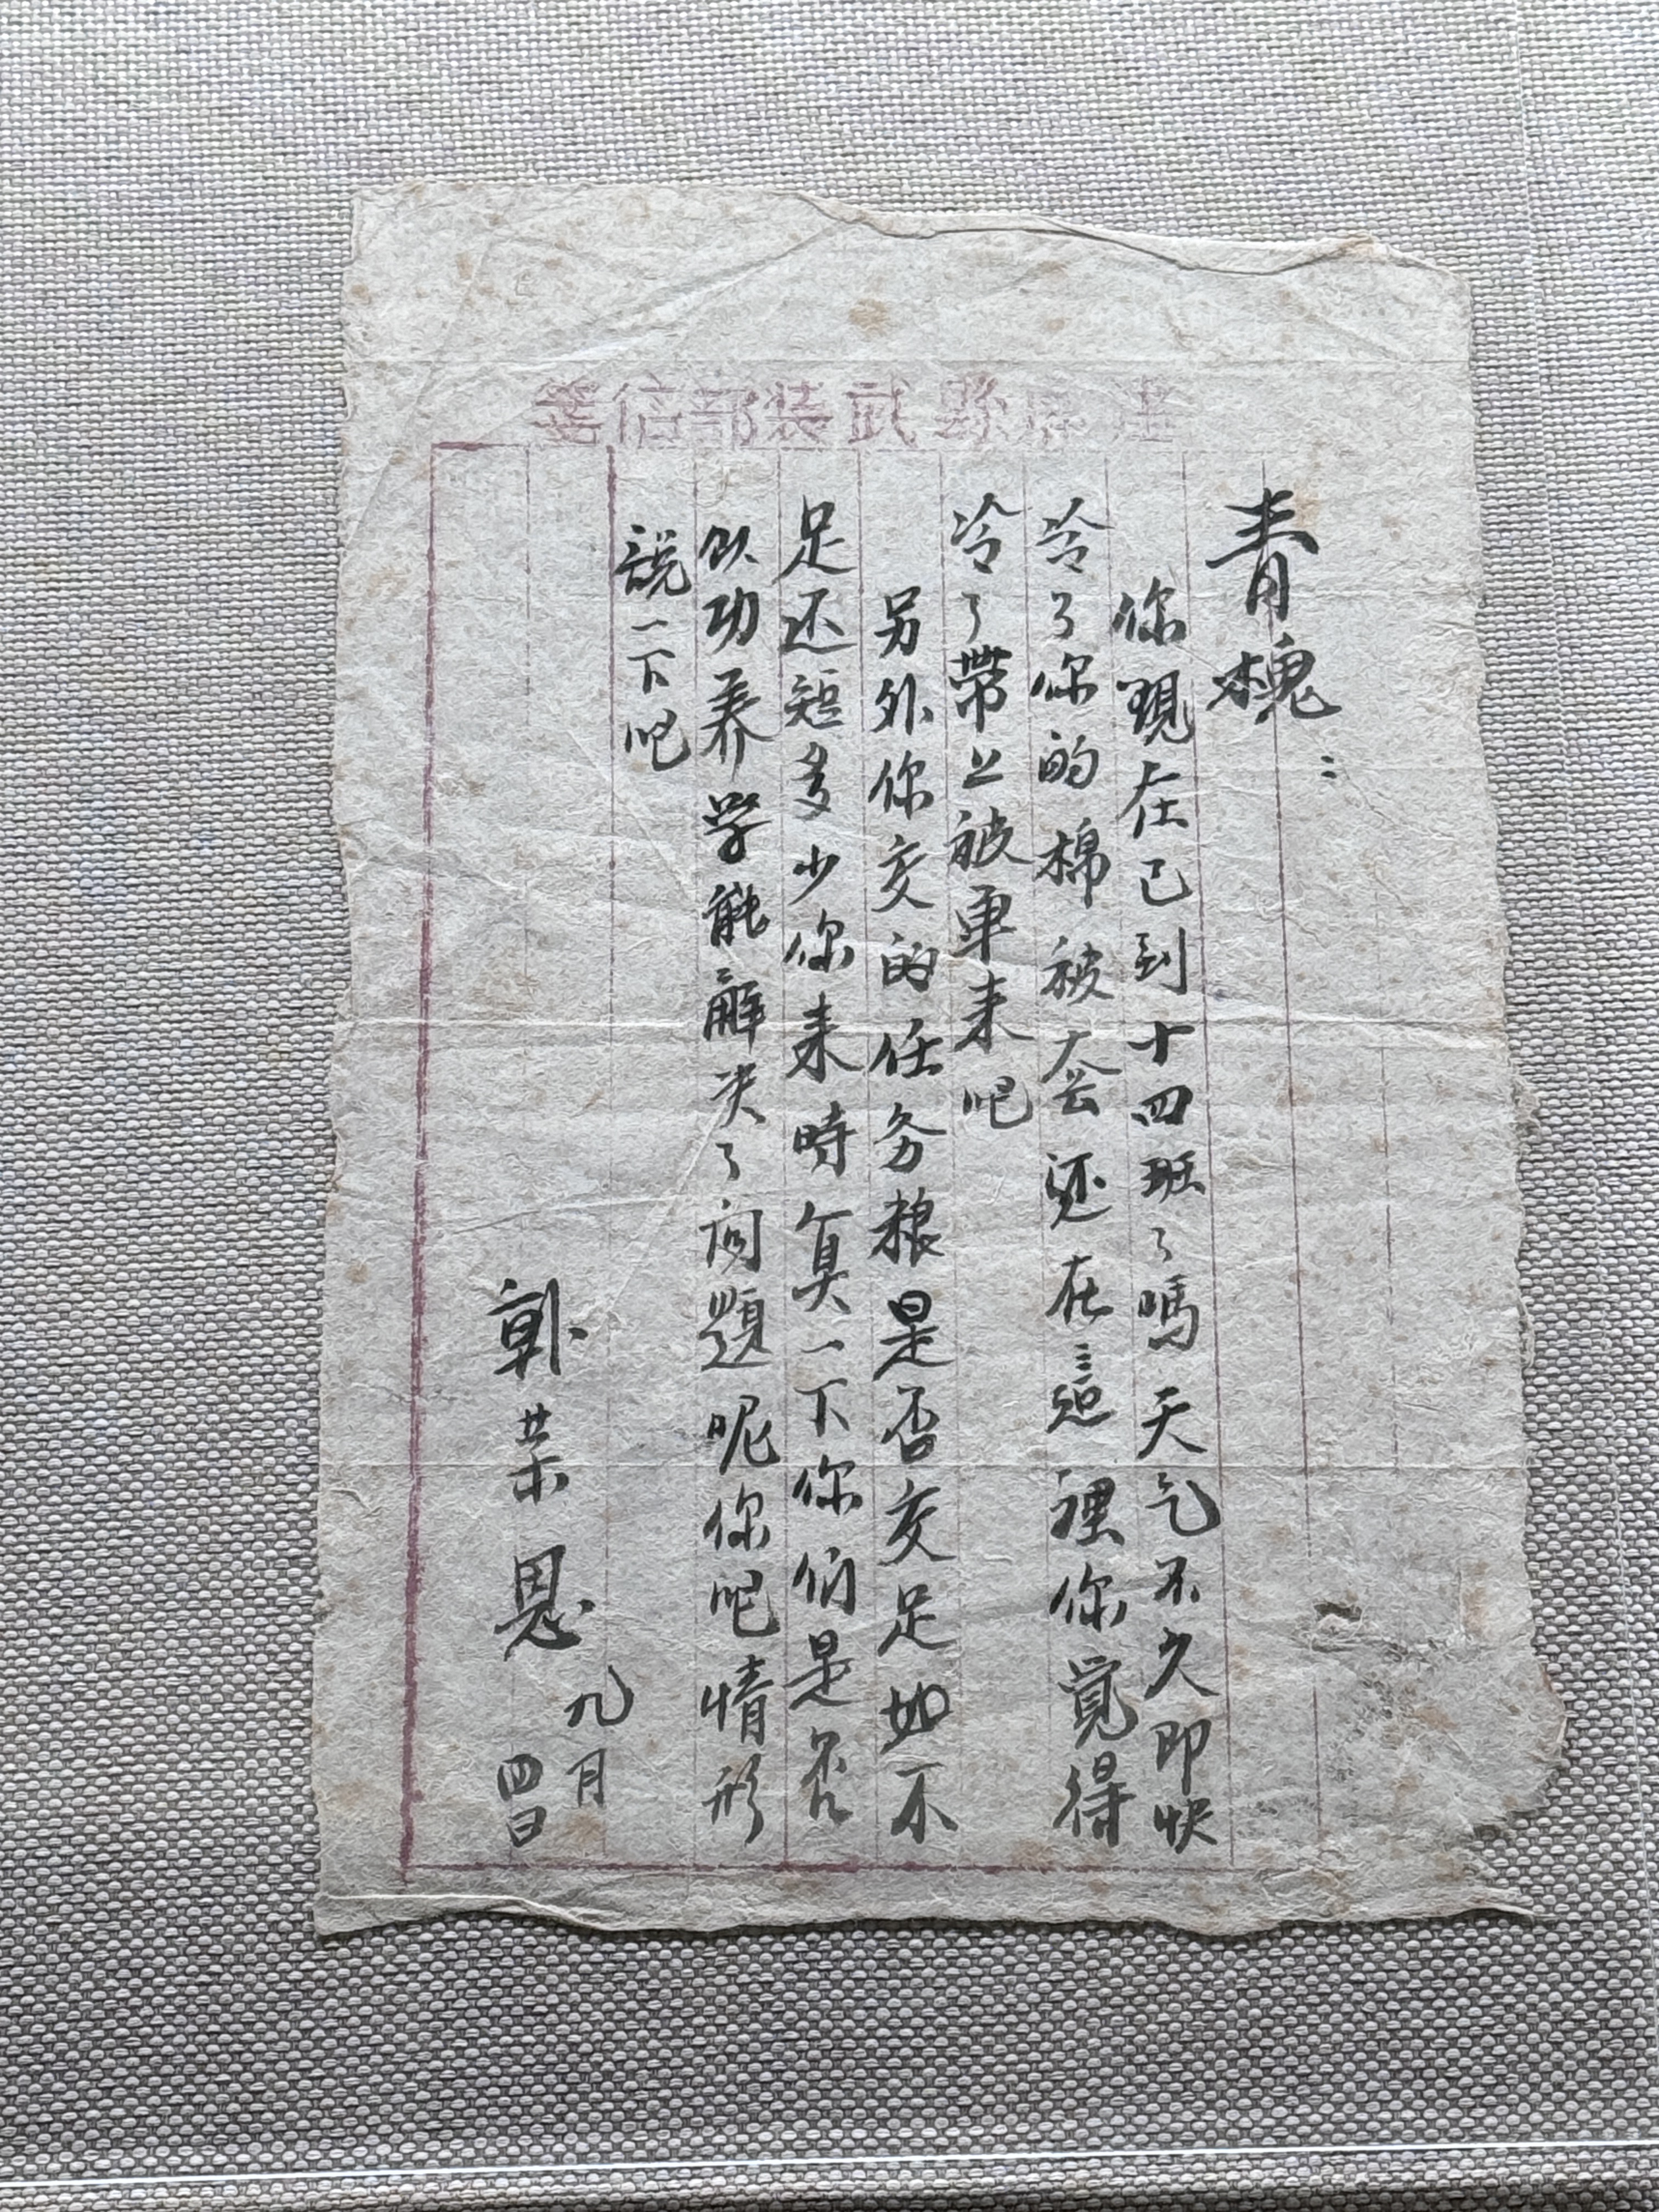 縣武裝部信箋
青槐：
你現在已到十四班了嗎天气不久即快
冷了你的棉被大会还在這裡你覚得
冷了帶上被单来吧
另外你交的任务粮是否交足如不
足还短多少你来時算一下你们是否
似功养学能解决了问題呢你吧情形
説一下吧
郭荣恩
九月
四日